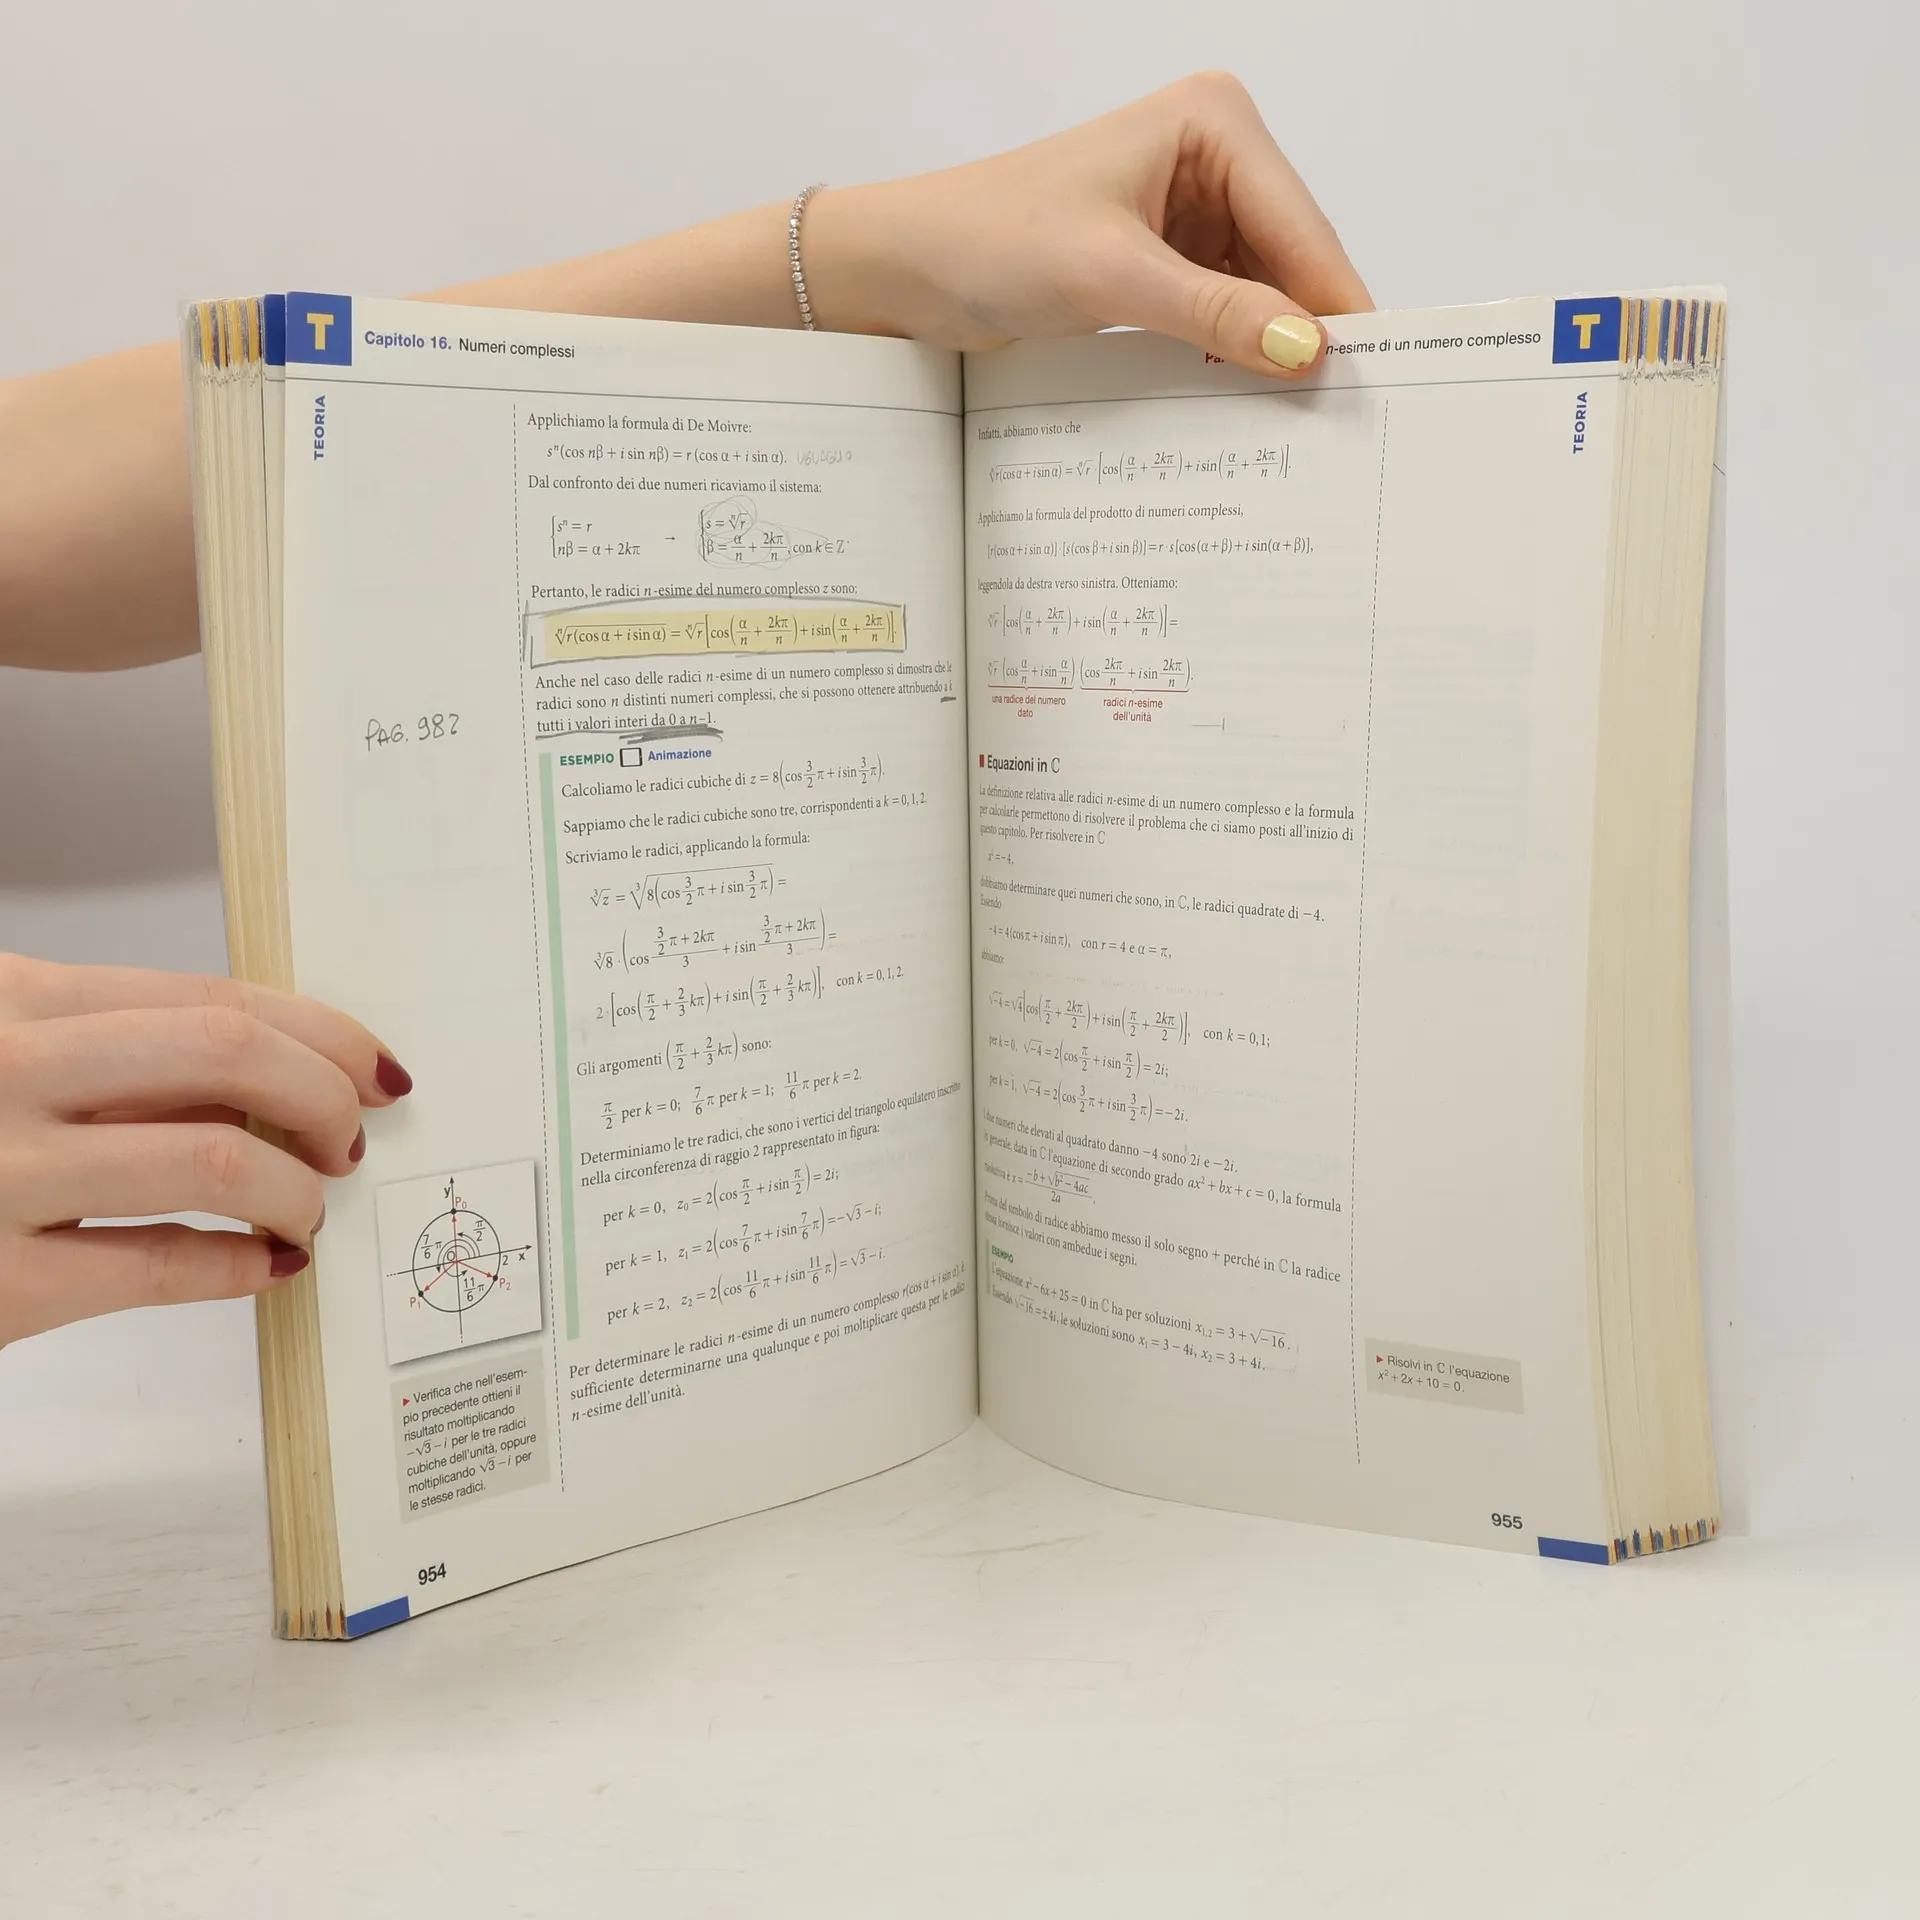 T
Capitolo 16. Numeri complessi
TEORIA
Applichiamo la formula di De Moivre:
sⁿ(cos nβ + i sin nβ) = r (cos α + i sin α).
Dal confronto dei due numeri ricaviamo il sistema:
{sⁿ = r
{nβ = α + 2kπ
→
{s = ⁿ√r
{β = α/n + 2kπ/n, con k ∈ Z
Pertanto, le radici n-esime del numero complesso z sono:
ⁿ√r(cos α + i sin α) = ⁿ√r[cos(α/n + 2kπ/n) + i sin(α/n + 2kπ/n)].
Anche nel caso delle radici n-esime di un numero complesso si dimostra che le
radici sono n distinti numeri complessi, che si possono ottenere attribuendo a k
tutti i valori interi da 0 a n−1.
PAG. 982
ESEMPIO Animazione
Calcoliamo le radici cubiche di z = 8(cos 3/2 π + i sin 3/2 π).
Sappiamo che le radici cubiche sono tre, corrispondenti a k = 0, 1, 2.
Scriviamo le radici, applicando la formula:
³√z = ³√8(cos 3/2 π + i sin 3/2 π) =
³√8 · (cos (3/2 π + 2kπ)/3 + i sin (3/2 π + 2kπ)/3) =
2 · [cos(π/2 + 2/3 kπ) + i sin(π/2 + 2/3 kπ)], con k = 0, 1, 2.
Gli argomenti (π/2 + 2/3 kπ) sono:
π/2 per k = 0; 7/6 π per k = 1; 11/6 π per k = 2.
Determiniamo le tre radici, che sono i vertici del triangolo equilatero inscritto
nella circonferenza di raggio 2 rappresentato in figura:
per k = 0, z₀ = 2(cos π/2 + i sin π/2) = 2i;
per k = 1, z₁ = 2(cos 7/6 π + i sin 7/6 π) = −√3 − i;
per k = 2, z₂ = 2(cos 11/6 π + i sin 11/6 π) = √3 − i.
Per determinare le radici n-esime di un numero complesso r(cos α + i sin α), è
sufficiente determinarne una qualunque e poi moltiplicare questa per le radici
n-esime dell'unità.
y
P₀
7/6 π
π/2
O
2
x
11/6 π
P₁
P₂
▶ Verifica che nell'esem-
pio precedente ottieni il
risultato moltiplicando
−√3 − i per le tre radici
cubiche dell'unità, oppure
moltiplicando √3 − i per
le stesse radici.
954
n-esime di un numero complesso
T
TEORIA
Infatti, abbiamo visto che
ⁿ√r(cos α + i sin α) = ⁿ√r · [cos(α/n + 2kπ/n) + i sin(α/n + 2kπ/n)].
Applichiamo la formula del prodotto di numeri complessi,
[r(cos α + i sin α)] · [s(cos β + i sin β)] = r · s[cos(α + β) + i sin(α + β)],
leggendola da destra verso sinistra. Otteniamo:
ⁿ√r · [cos(α/n + 2kπ/n) + i sin(α/n + 2kπ/n)] =
ⁿ√r · (cos α/n + i sin α/n) · (cos 2kπ/n + i sin 2kπ/n).
una radice del numero
dato
radici n-esime
dell'unità
Equazioni in C
La definizione relativa alle radici n-esime di un numero complesso e la formula
per calcolarle permettono di risolvere il problema che ci siamo posti all'inizio di
questo capitolo. Per risolvere in C
x² = −4,
dobbiamo determinare quei numeri che sono, in C, le radici quadrate di −4.
Essendo
−4 = 4(cos π + i sin π), con r = 4 e α = π,
abbiamo:
√−4 = √4[cos(π/2 + 2kπ/2) + i sin(π/2 + 2kπ/2)], con k = 0, 1;
per k = 0, √−4 = 2(cos π/2 + i sin π/2) = 2i;
per k = 1, √−4 = 2(cos 3/2 π + i sin 3/2 π) = −2i.
I due numeri che elevati al quadrato danno −4 sono 2i e −2i.
In generale, data in C l'equazione di secondo grado ax² + bx + c = 0, la formula
risolutiva è x = (−b + √b² − 4ac)/2a.
Prima del simbolo di radice abbiamo messo il solo segno + perché in C la radice
stessa fornisce i valori con ambedue i segni.
ESEMPIO
L'equazione x² − 6x + 25 = 0 in C ha per soluzioni x₁,₂ = 3 + √−16.
Essendo √−16 = ±4i, le soluzioni sono x₁ = 3 − 4i, x₂ = 3 + 4i.
▶ Risolvi in C l'equazione
x² + 2x + 10 = 0.
955